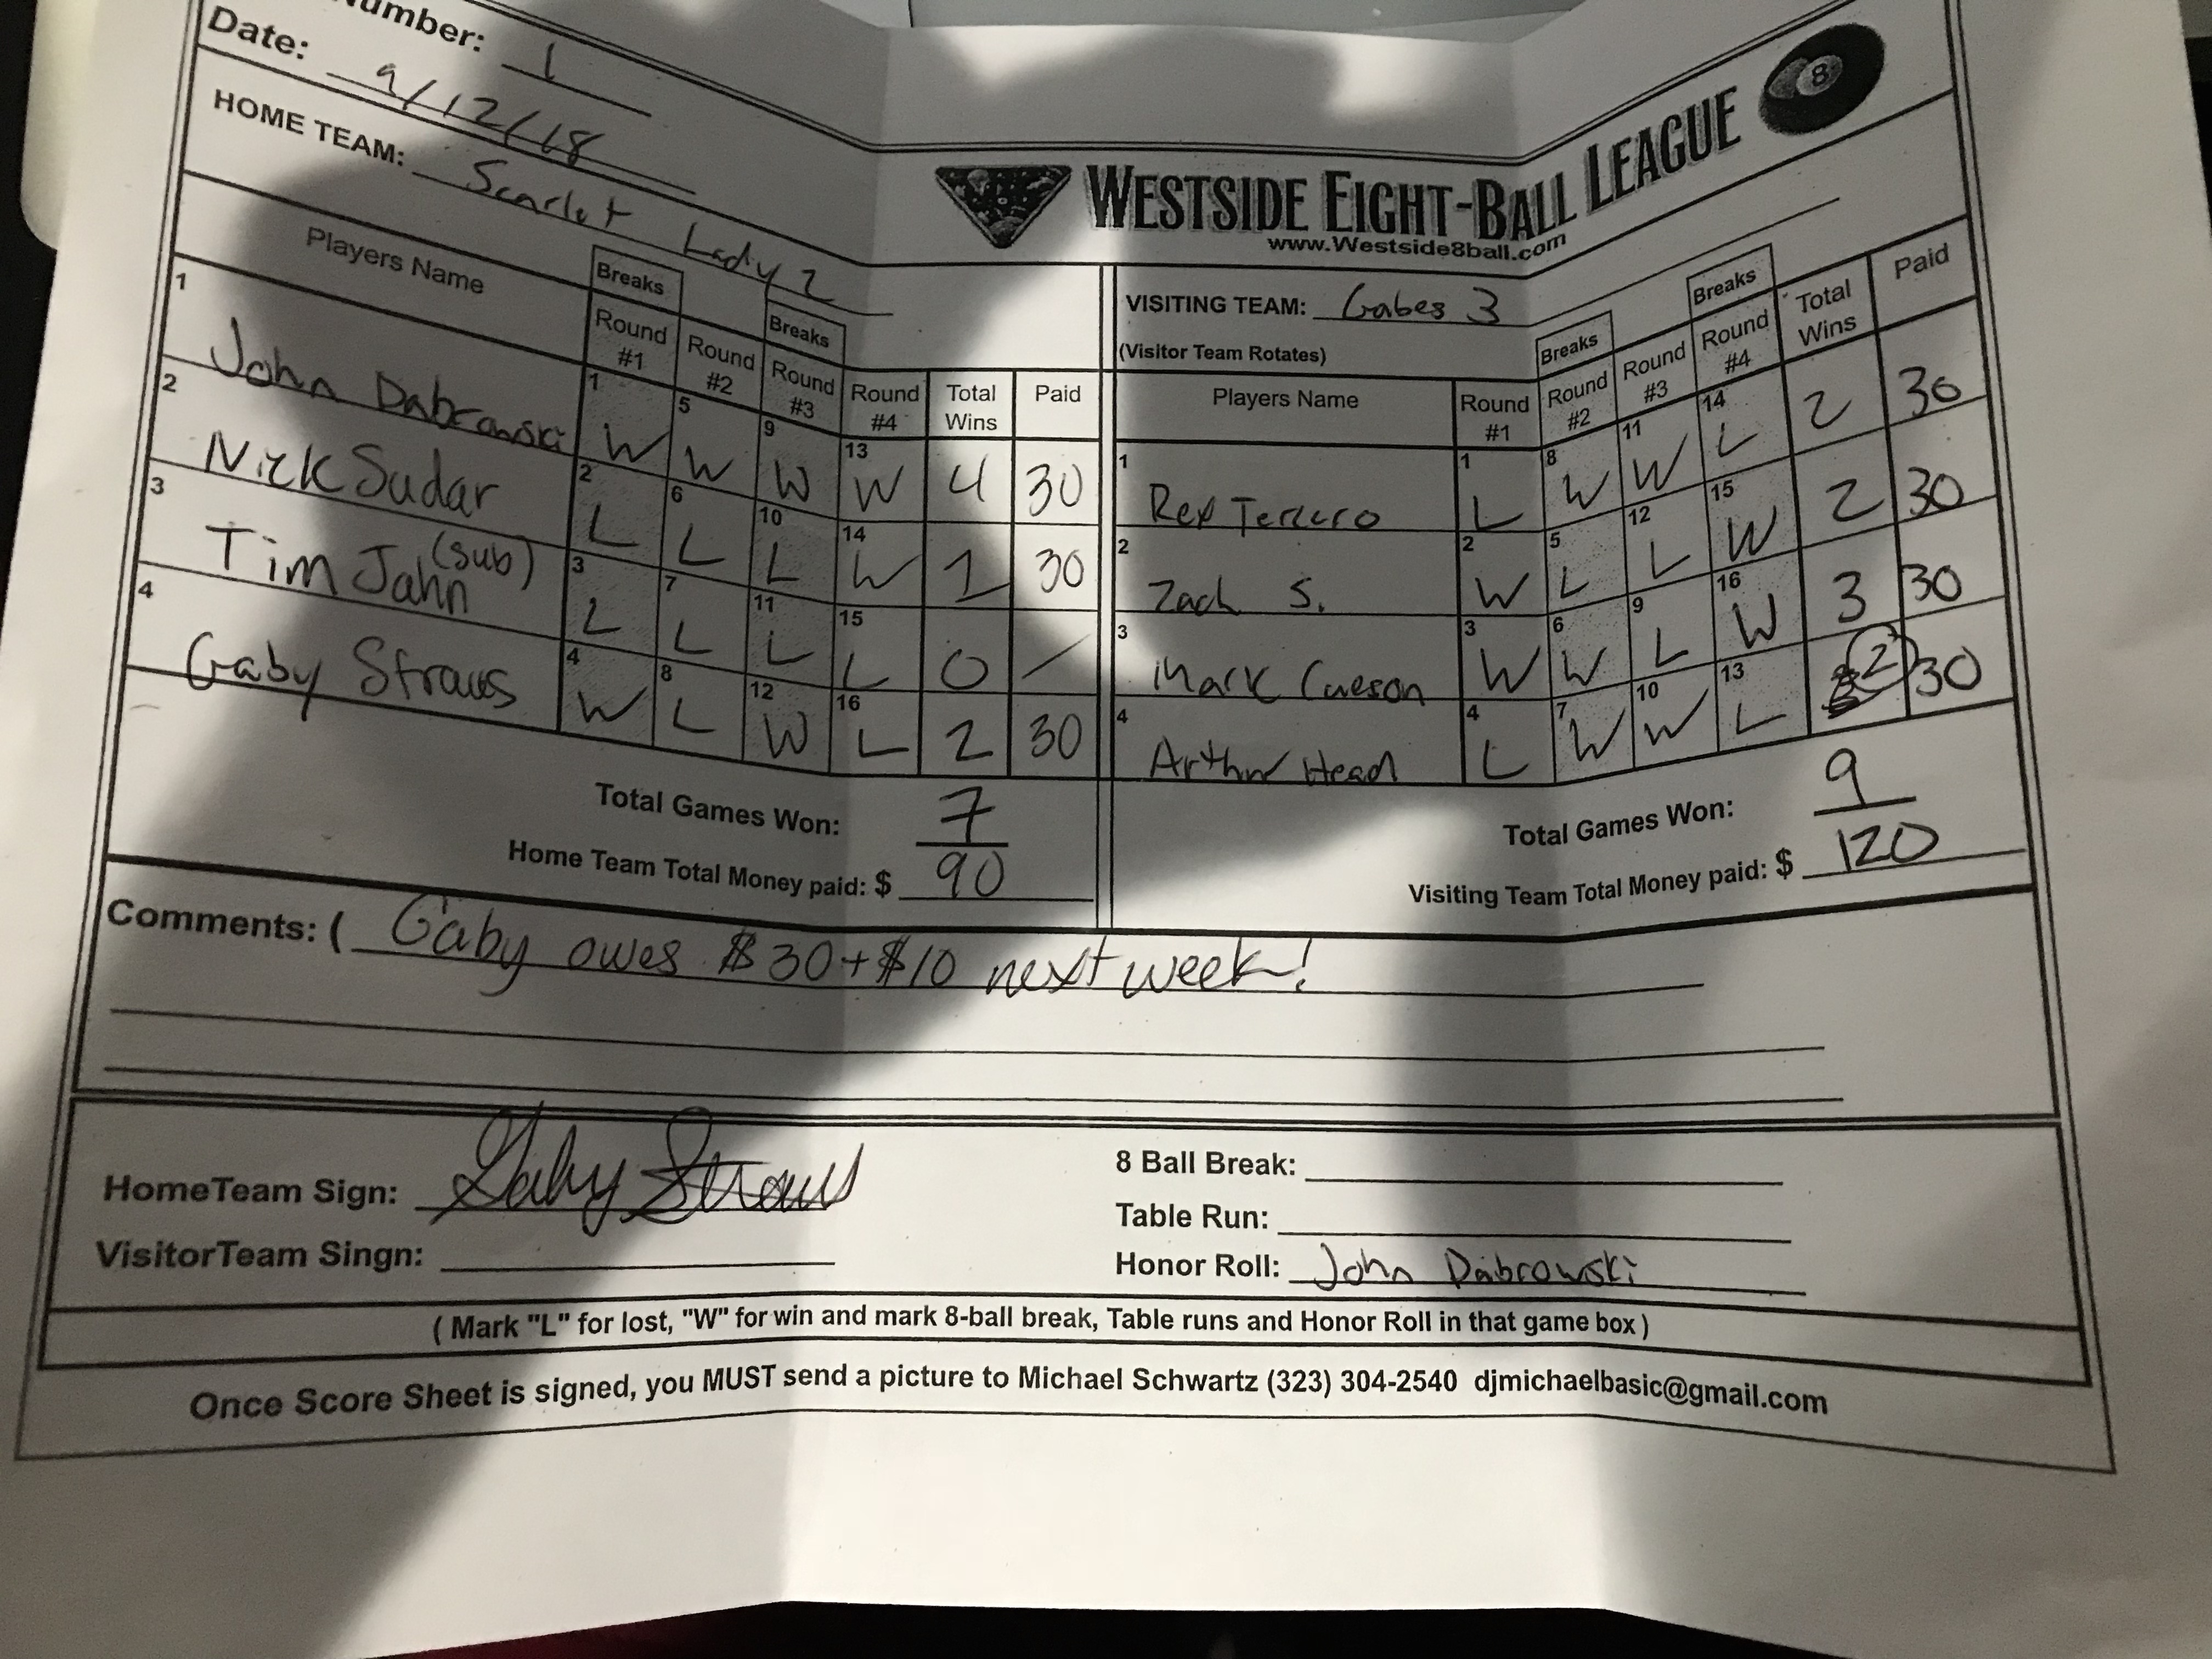 Number: 1
Date: 9/12/18
HOME TEAM: Scarlet Lady 2
WESTSIDE EIGHT-BALL LEAGUE 8
www.Westside8ball.com
Players Name Breaks Round #1 Round #2 Breaks Round #3 Round #4 Total Wins Paid
1 John Dabrowski 1 W 5 W 9 W 13 W 4 30
2 Nick Sudar 2 L 6 L 10 L 14 W 1 30
3 Tim Jahn (sub) 3 L 7 L 11 L 15 L 0 /
4 Gaby Straus 4 W 8 L 12 W 16 L 2 30
Total Games Won: 7
Home Team Total Money paid: $ 90
VISITING TEAM: Gabes 3
(Visitor Team Rotates)
Players Name Round #1 Breaks Round #2 Round #3 Breaks Round #4 Total Wins Paid
1 Rex Tercero 1 L 8 W 11 W 14 L 2 30
2 Zach S. 2 W 5 L 12 L 15 W 2 30
3 Mark 3 W 6 W 9 L 16 W 3 30
4 Arthur Head 4 L 7 W 10 W 13 L 2 30
Total Games Won: 9
Visiting Team Total Money paid: $ 120
Comments: ( Gaby owes $30+$10 next week!
HomeTeam Sign: Gaby Straus
VisitorTeam Singn:
8 Ball Break:
Table Run:
Honor Roll: John Dabrowski
( Mark "L" for lost, "W" for win and mark 8-ball break, Table runs and Honor Roll in that game box )
Once Score Sheet is signed, you MUST send a picture to Michael Schwartz (323) 304-2540 djmichaelbasic@gmail.com